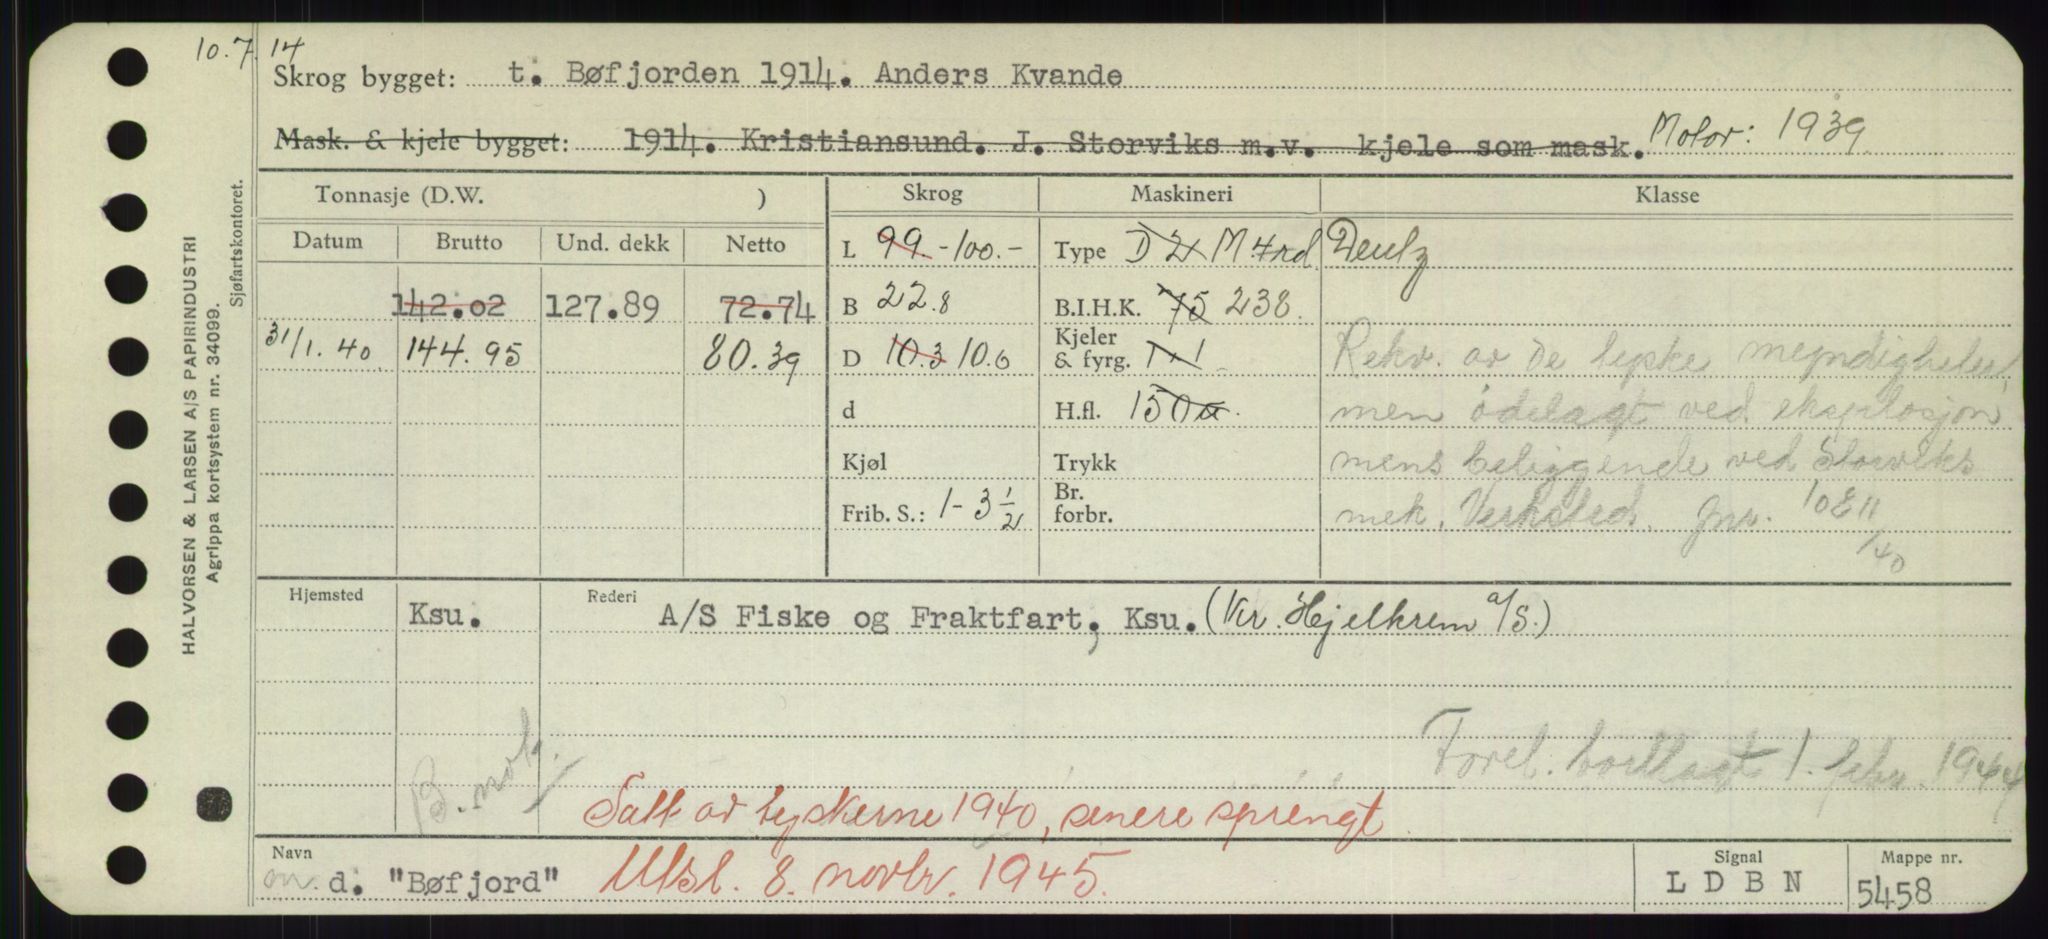 10.7.14
Skrog bygget: t. Bøfjorden 1914. Anders Kvande
Mask. & kjele bygget: 1914. Kristiansund. J. Storviks m.v. kjele som mask. Motor: 1939
Tonnasje (D.W. ) Skrog Maskineri Klasse
Datum Brutto Und. dekk Netto L 99 - 100.- Type D 2x M 4rd. Deutz
142.02 127.89 72.74 B 22.8 B.I.H.K. 75 238.
31/1.40 144.95 80.39 D 10.3 10.6 Kjeler & fyrg. 1 x 1 Rekv. av de tyske myndigheter,
d H.fl. 150 men ödelagt ved eksplosjon
Kjøl Trykk mens beliggende ved Storviks
Frib. S.: 1 - 3 1/2 Br. forbr. mek. Verksted. Jnr. 10811/40
Hjemsted Ksu. Rederi A/S Fiske og Fraktfart, Ksu. (Kr. Hjelkrem A/S.)
Forel. bortlagt 1. febr. 1944
B. not.
Tatt av tyskerne 1940, senere sprengt
Navn m. d. "Bøfjord" Utsl. 8. novbr. 1945.
Signal LDBN
Mappe nr. 5458
HALVORSEN & LARSEN A/S PAPIRINDUSTRI
Agrippa kortsystem nr. 34099.
Sjøfartskontoret.